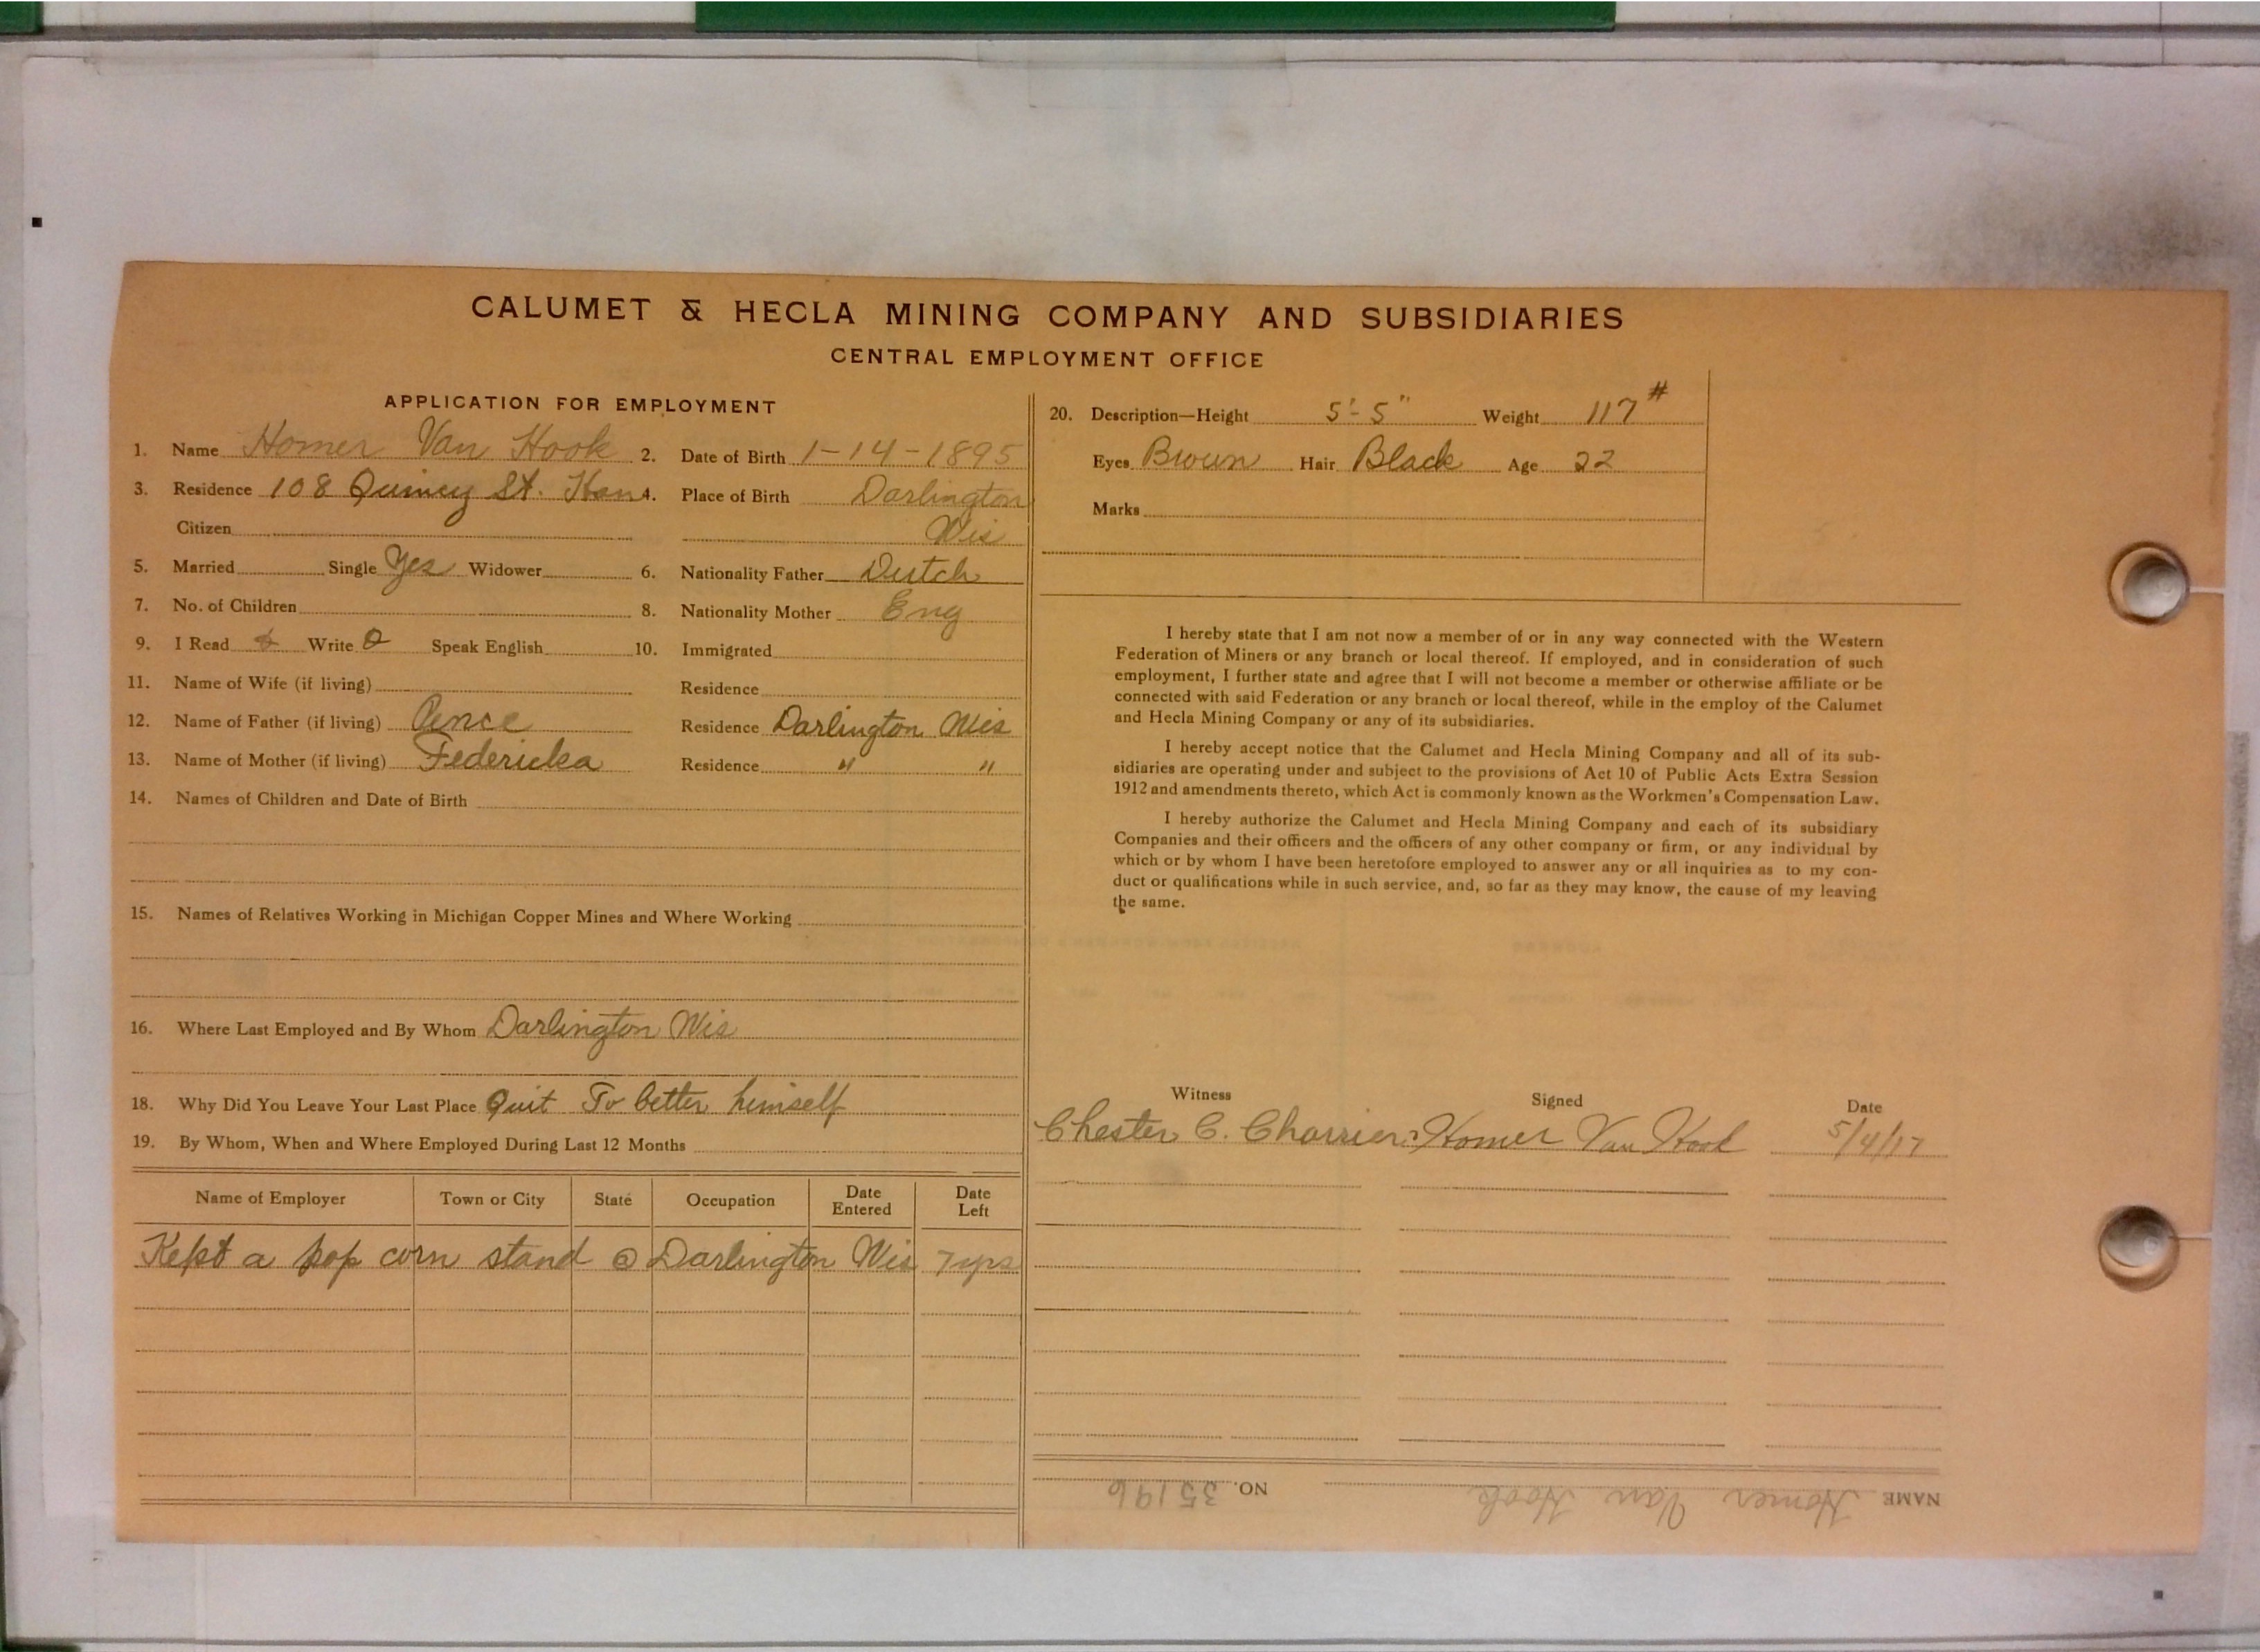 CALUMET & HECLA MINING COMPANY AND SUBSIDIARIES
CENTRAL EMPLOYMENT OFFICE
APPLICATION FOR EMPLOYMENT
1. Name Homer Van Hook 2. Date of Birth 1-14-1895
3. Residence 108 Quincy St. Han 4. Place of Birth Darlington
Citizen Wis
5. Married Single Yes Widower 6. Nationality Father Dutch
7. No. of Children 8. Nationality Mother Eng
9. I Read Write Speak English 10. Immigrated
11. Name of Wife (if living) Residence
12. Name of Father (if living) Pence Residence Darlington Wis
13. Name of Mother (if living) Federicka Residence " "
14. Names of Children and Date of Birth
15. Names of Relatives Working in Michigan Copper Mines and Where Working
16. Where Last Employed and By Whom Darlington Wis
18. Why Did You Leave Your Last Place Quit To better himself
19. By Whom, When and Where Employed During Last 12 Months
Name of Employer Town or City State Occupation Date Entered Date Left
Kept a pop corn stand @ Darlington Wis 7yrs
20. Description—Height 5'-5" Weight 117#
Eyes Brown Hair Black Age 22
Marks
I hereby state that I am not now a member of or in any way connected with the Western
Federation of Miners or any branch or local thereof. If employed, and in consideration of such
employment, I further state and agree that I will not become a member or otherwise affiliate or be
connected with said Federation or any branch or local thereof, while in the employ of the Calumet
and Hecla Mining Company or any of its subsidiaries.
I hereby accept notice that the Calumet and Hecla Mining Company and all of its sub-
sidiaries are operating under and subject to the provisions of Act 10 of Public Acts Extra Session
1912 and amendments thereto, which Act is commonly known as the Workmen's Compensation Law.
I hereby authorize the Calumet and Hecla Mining Company and each of its subsidiary
Companies and their officers and the officers of any other company or firm, or any individual by
which or by whom I have been heretofore employed to answer any or all inquiries as to my con-
duct or qualifications while in such service, and, so far as they may know, the cause of my leaving
the same.
Witness Signed Date
Chester C. Charrier Homer Van Hook 5/4/17
NAME Homer Van Hook NO. 35196